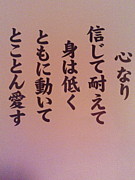 心なり
信じて耐えて
身は低く
ともに動いて
とことん愛す